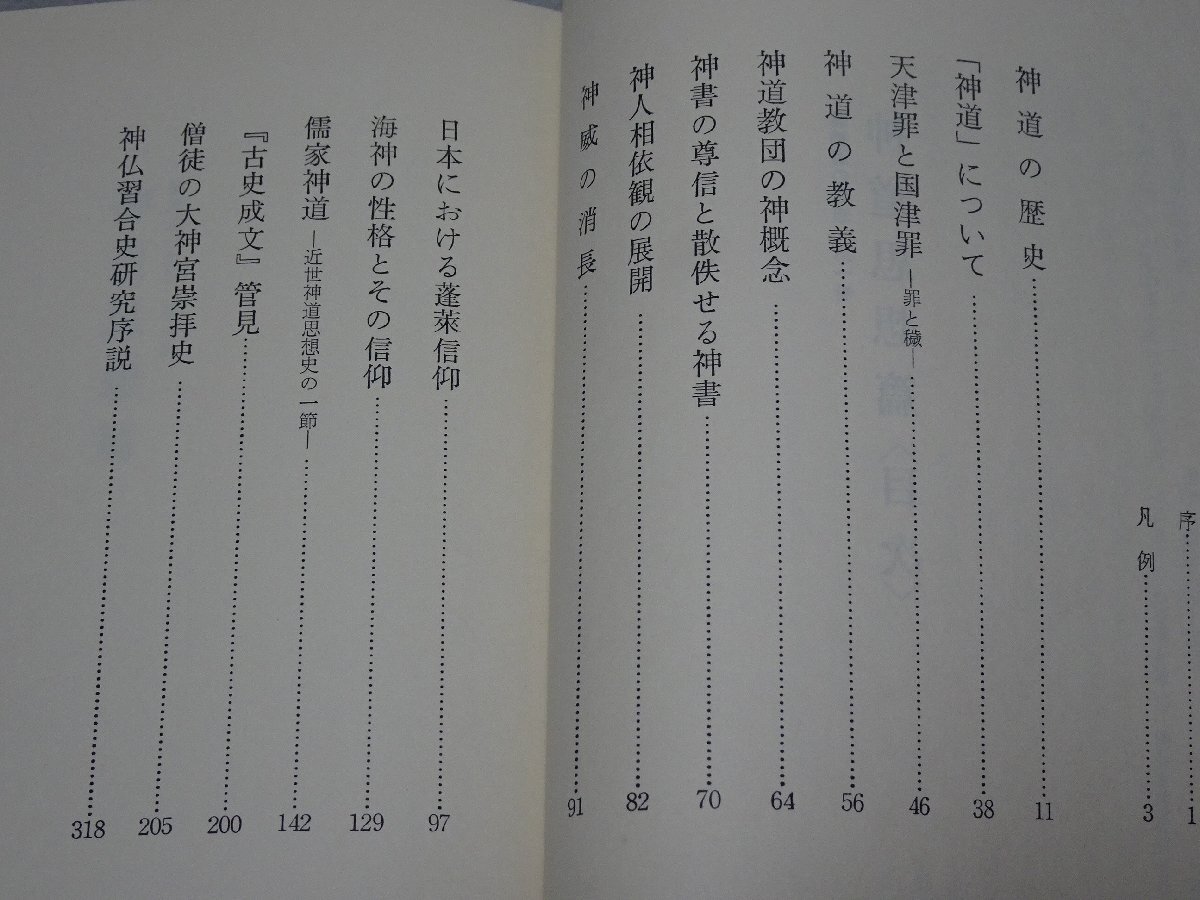 序……1
凡例……3
神道の歴史……11
「神道」について……38
天津罪と国津罪―罪と穢―……46
神道の教義……56
神道教団の神概念……64
神書の尊信と散佚せる神書……70
神人相依観の展開……82
神威の消長……91
日本における蓬萊信仰……97
海神の性格とその信仰……129
儒家神道―近世神道思想史の一節―……142
『古史成文』管見……200
僧徒の大神宮崇拝史……205
神仏習合史研究序説……318